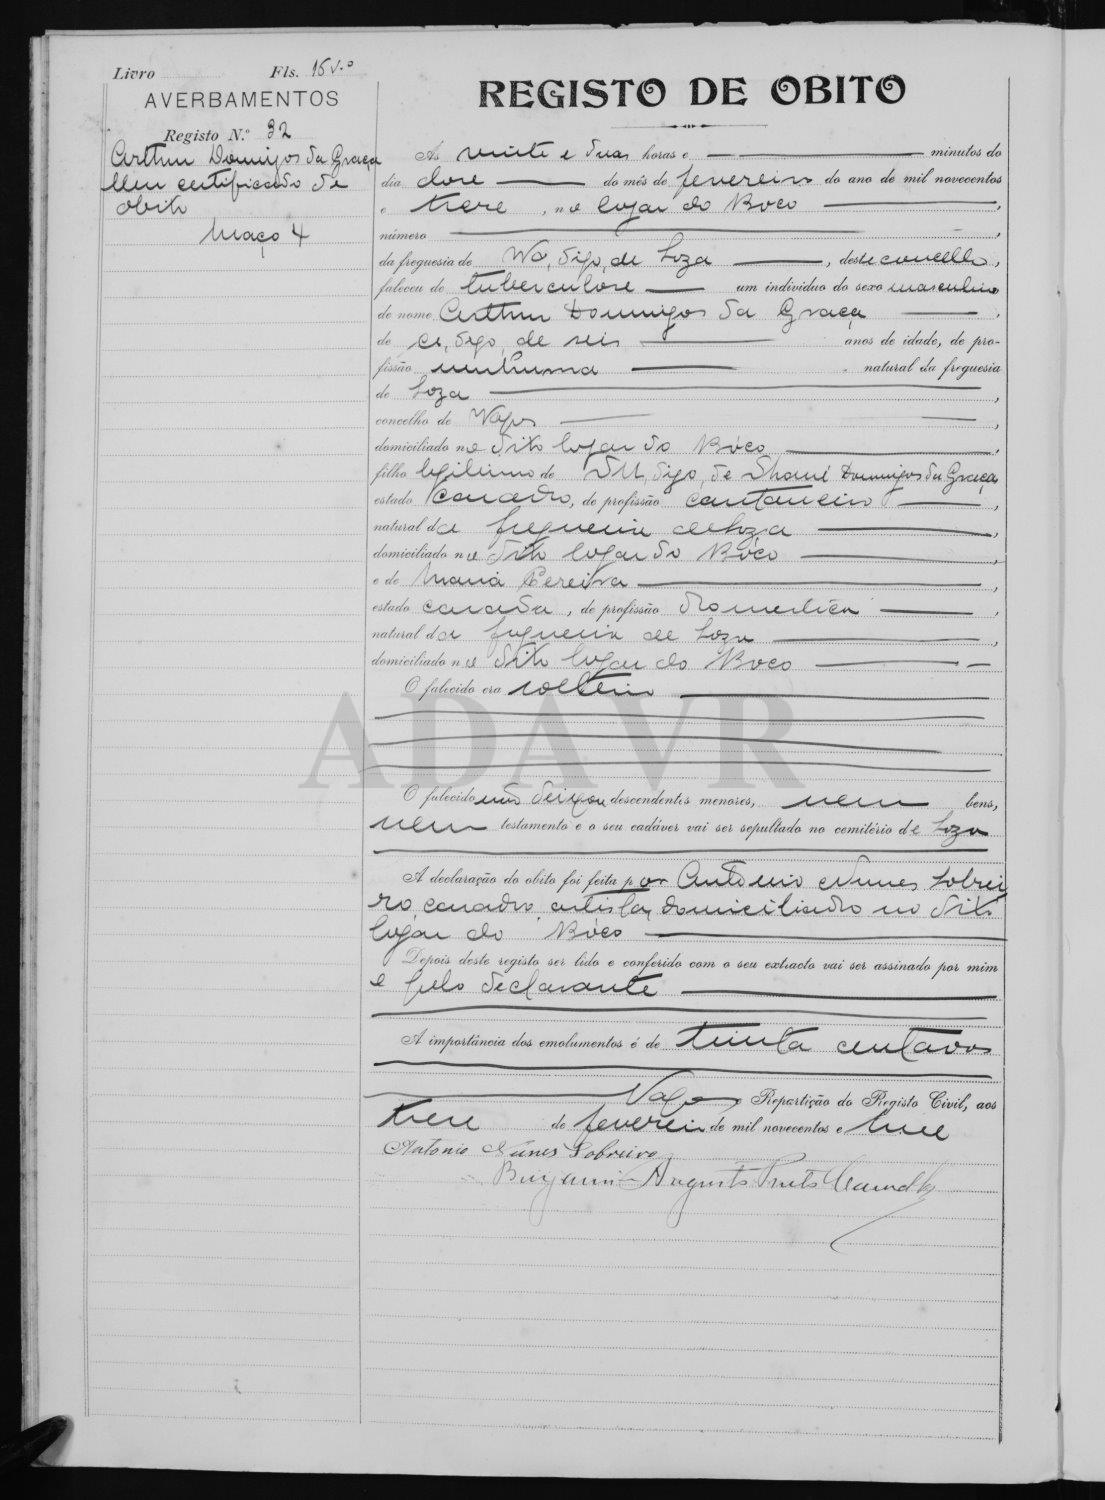 Livro Fls. 15 v.º
AVERBAMENTOS
Registo N.º 32
Arthur Domingos da Graça
Um certificado de
obito
Maço 4
REGISTO DE OBITO
As vinte e duas horas e minutos do
dia doze do mês de fevereiro do ano de mil novecentos
e treze, no logar do Boco,
número,
da freguesia de Va, digo, de Soza, deste concelho,
faleceu de tuberculose um individuo do sexo masculino
de nome Arthur Domingos da Graça,
de ce, digo, de seis anos de idade, de pro-
fissão nenhuma natural da freguesia
de Soza,
concelho de Vagos,
domiciliado no dito logar do Bóco,
filho legitimo de digo, de Domingos da Graça
estado casado, de profissão cantoneiro,
natural da freguesia de Soza,
domiciliado no dito logar do Bóco,
e de Maria Pereira,
estado casada, de profissão domestica,
natural da freguesia de Soza,
domiciliado no dito logar do Boco
O falecido era solteiro
O falecido não deixou descendentes menores, nem bens,
nem testamento e o seu cadáver vai ser sepultado no cemitério de Soza
A declaração do obito foi feita por Antonio Nunes Sobrei
ro, casado, artista, domiciliado no dito
logar do Bóco
Depois deste registo ser lido e conferido com o seu extracto vai ser assinado por mim
e pelo declarante
A importância dos emolumentos é de trinta centavos
Vagos e Repartição do Registo Civil, aos
treze de fevereiro de mil novecentos e treze
Antonio Nunes Sobreiro
Augusto
ADAVR